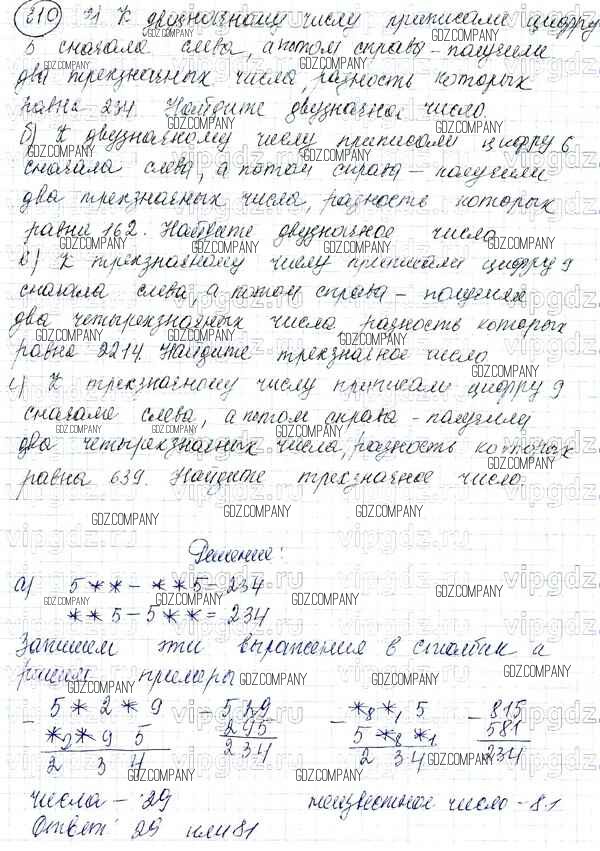 310 а) К двузначному числу приписали цифру
5 сначала слева, а потом справа – получили
два трехзначных числа, разность которых
равна 234. Найдите двузначное число.
б) К двузначному числу приписали цифру 6
сначала слева, а потом справа – получили
два трехзначных числа, разность которых
равна 162. Найдите двузначное число.
в) К трехзначному числу приписали цифру 9
сначала слева, а потом справа – получили
два четырехзначных числа разность которых
равна 2214. Найдите трехзначное число
г) К трехзначному числу приписали цифру 9
сначала слева, а потом справа – получили
два четырехзначных числа, разность которых
равна 639. Найдите трехзначное число.
Решение:
а) 5** – **5 = 234
**5 – 5** = 234
Запишем эти выражения в столбик и
решим примеры
– 5*2*9 – 529 – *8*1 5 – 815
*2*9 5 295 5*8*1 581
2 3 4 234 2 3 4 234
числа – 29 неизвестное число – 81
Ответ: 29 или 81
GDZ.COMPANY
vipgdz.ru